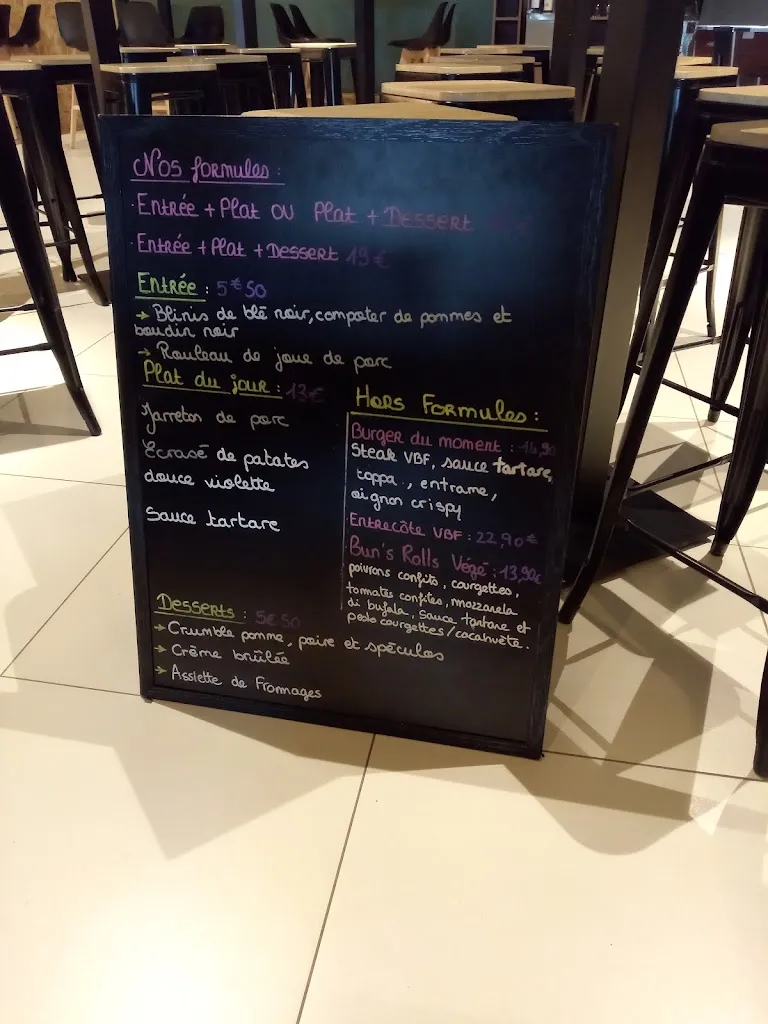 Nos formules :
· Entrée + Plat ou Plat + Dessert
· Entrée + Plat + Dessert 19€
Entrée : 5€50
→ Blinis de blé noir, compoter de pommes et
boudin noir
→ Rouleau de joue de porc
Plat du jour : 13€
Jarreton de porc
Ecrasé de patates
douce violette
Sauce tartare
Hors Formules :
Burger du moment : 14,90
Steak VBF, sauce tartare,
coppa, entrame,
oignon crispy
Entrecôte VBF : 22,90€
Bun's Rolls Végé : 13,90€
poivrons confits, courgettes,
tomates confites, mozzarela
di bufala, sauce tartare et
pesto courgettes/cacahuète.
Desserts : 5€50
→ Crumble pomme, poire et spéculos
→ Crème brûlée
→ Assiette de Fromages